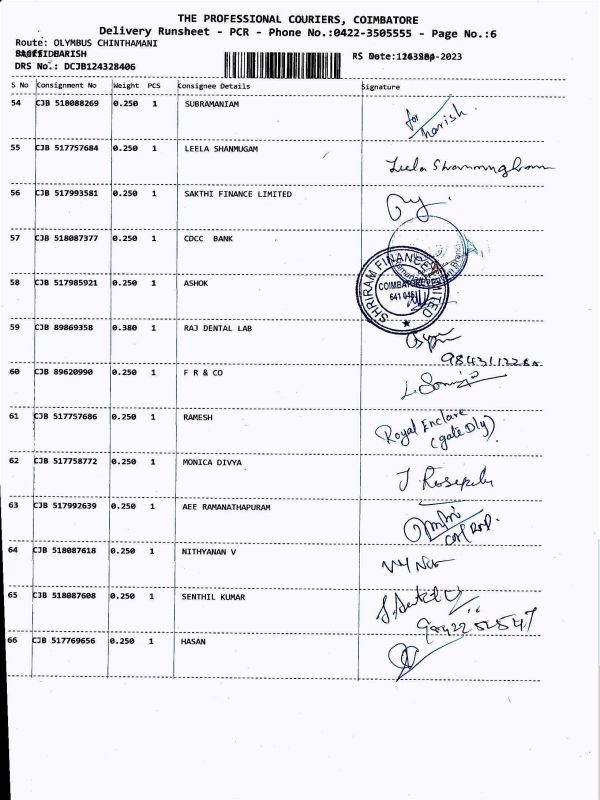 THE PROFESSIONAL COURIERS, COIMBATORE
Delivery Runsheet - PCR - Phone No.:0422-3505555 - Page No.:6
Route: OLYMBUS CHINTHAMANI
DRS No.: DCJB124328406
S No Consignment No Weight PCS Consignee Details Signature
54 CJB 518088269 0.250 1 SUBRAMANIAM
for harish.
55 CJB 517757684 0.250 1 LEELA SHANMUGAM
Leela Shanmugham
56 CJB 517993581 0.250 1 SAKTHI FINANCE LIMITED
57 CJB 518087377 0.250 1 CDCC BANK
58 CJB 517985921 0.250 1 ASHOK
SHRIRAM FINANCE LIMITED
COIMBATORE
641 045
59 CJB 89869358 0.380 1 RAJ DENTAL LAB
60 CJB 89620990 0.250 1 F R & CO
61 CJB 517757686 0.250 1 RAMESH
Royal Enclave
(gate Dly)
62 CJB 517758772 0.250 1 MONICA DIVYA
63 CJB 517992639 0.250 1 AEE RAMANATHAPURAM
64 CJB 518087618 0.250 1 NITHYANAN V
65 CJB 518087608 0.250 1 SENTHIL KUMAR
66 CJB 517769656 0.250 1 HASAN